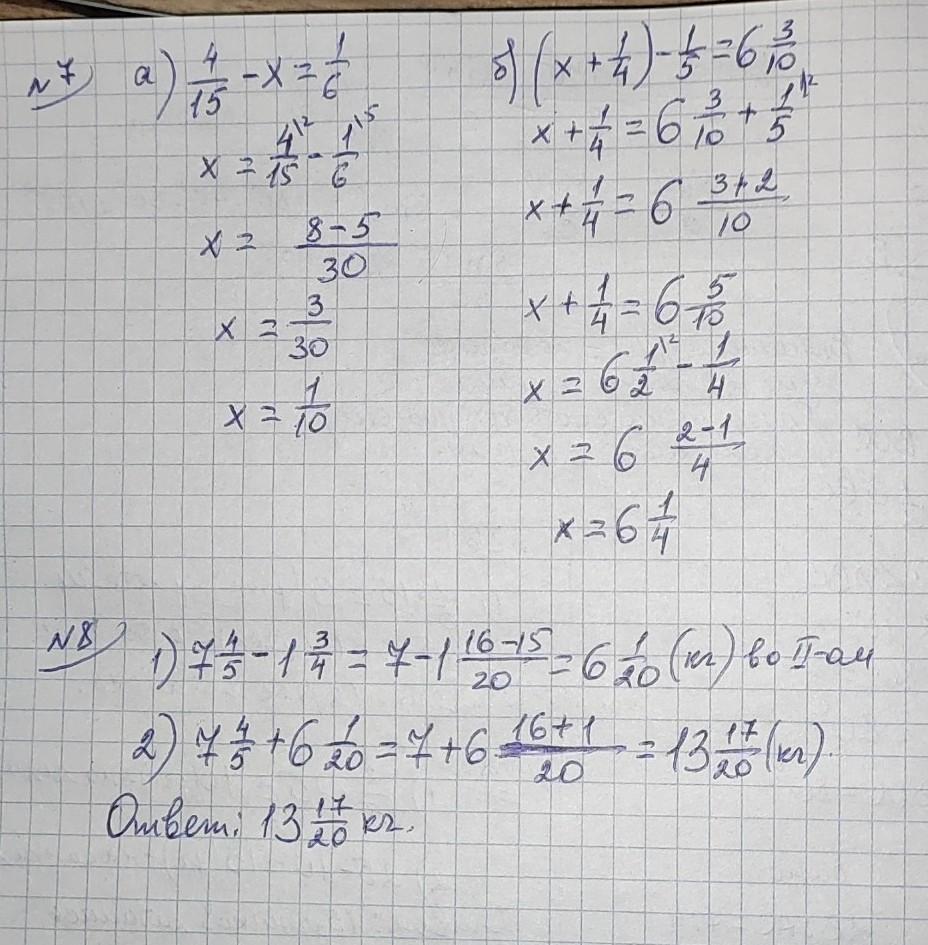 №7 а) 4/15 - x = 1/6
x = 4\2/15 - 1\5/6
x = (8-5)/30
x = 3/30
x = 1/10
б) (x + 1/4) - 1/5 = 6 3/10
x + 1/4 = 6 3/10 + 1\2/5
x + 1/4 = 6 (3+2)/10
x + 1/4 = 6 5/10
x = 6 1\2/2 - 1/4
x = 6 (2-1)/4
x = 6 1/4
№8 1) 7 4/5 - 1 3/4 = 7-1 (16-15)/20 = 6 1/20 (кг) во II-ом
2) 7 4/5 + 6 1/20 = 7+6 (16+1)/20 = 13 17/20 (кг).
Ответ: 13 17/20 кг.